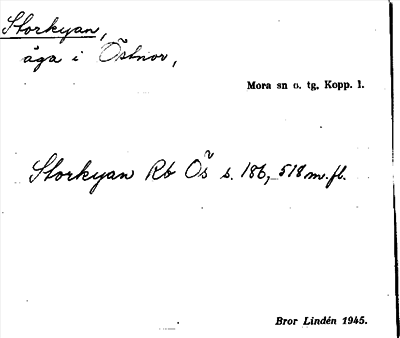 Storkyan,
äga i Östnor,
Mora sn o. tg, Kopp. l.
Storkyan Rb Ös s. 186, 518 m.fl.
Bror Lindén 1945.